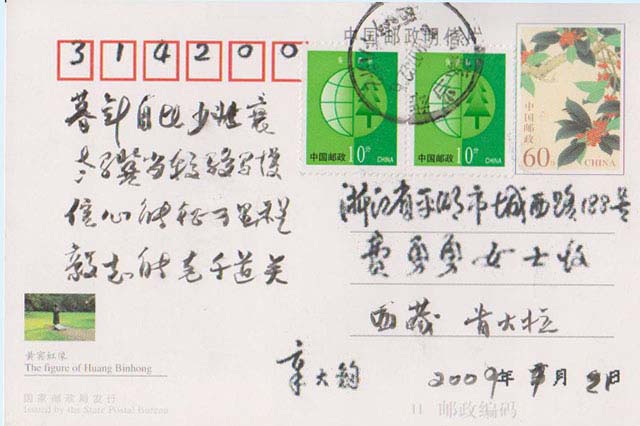 314200
中国邮政明信片
中国邮政 10分 CHINA
中国邮政 10分 CHINA
中国邮政
60分 CHINA
暮年自比少壮衰
老骥当较骏马慢
信心能征万里程
毅志能克千道关
浙江省平湖市城西路188号
费勇勇女士收
西藏 肯大拉
章大钧 2009年 月 2日
黄宾虹像
The figure of Huang Binhong
国家邮政局发行
Issued by the State Postal Bureau
11 邮政编码